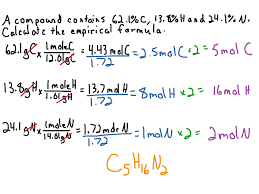 A compound contains 62.1%C, 13.8%H and 24.1%N.
Calculate the empirical formula.
62.1gC × 1moleC / 12.01gC = 4.43molC / 1.72 = 2.5molC ×2 = 5molC
13.8gH × 1moleH / 1.01gH = 13.7molH / 1.72 = 8molH ×2 = 16molH
24.1gN × 1moleN / 14.01gN = 1.72moleN / 1.72 = 1molN ×2 = 2molN
C5H16N2